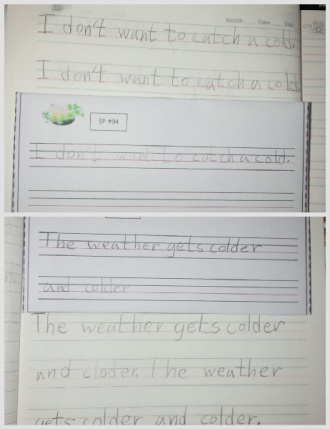 Month Date
I don't want to catch a cold.
I don't want to catch a cold
SP #94
I don't want to catch a cold.
The weather gets colder
and colder
The weather gets colder
and cloder. The weather
gets colder and colder.